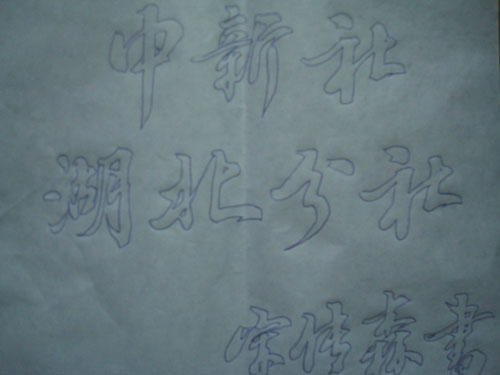 中新社
湖北分社
宗佳森書